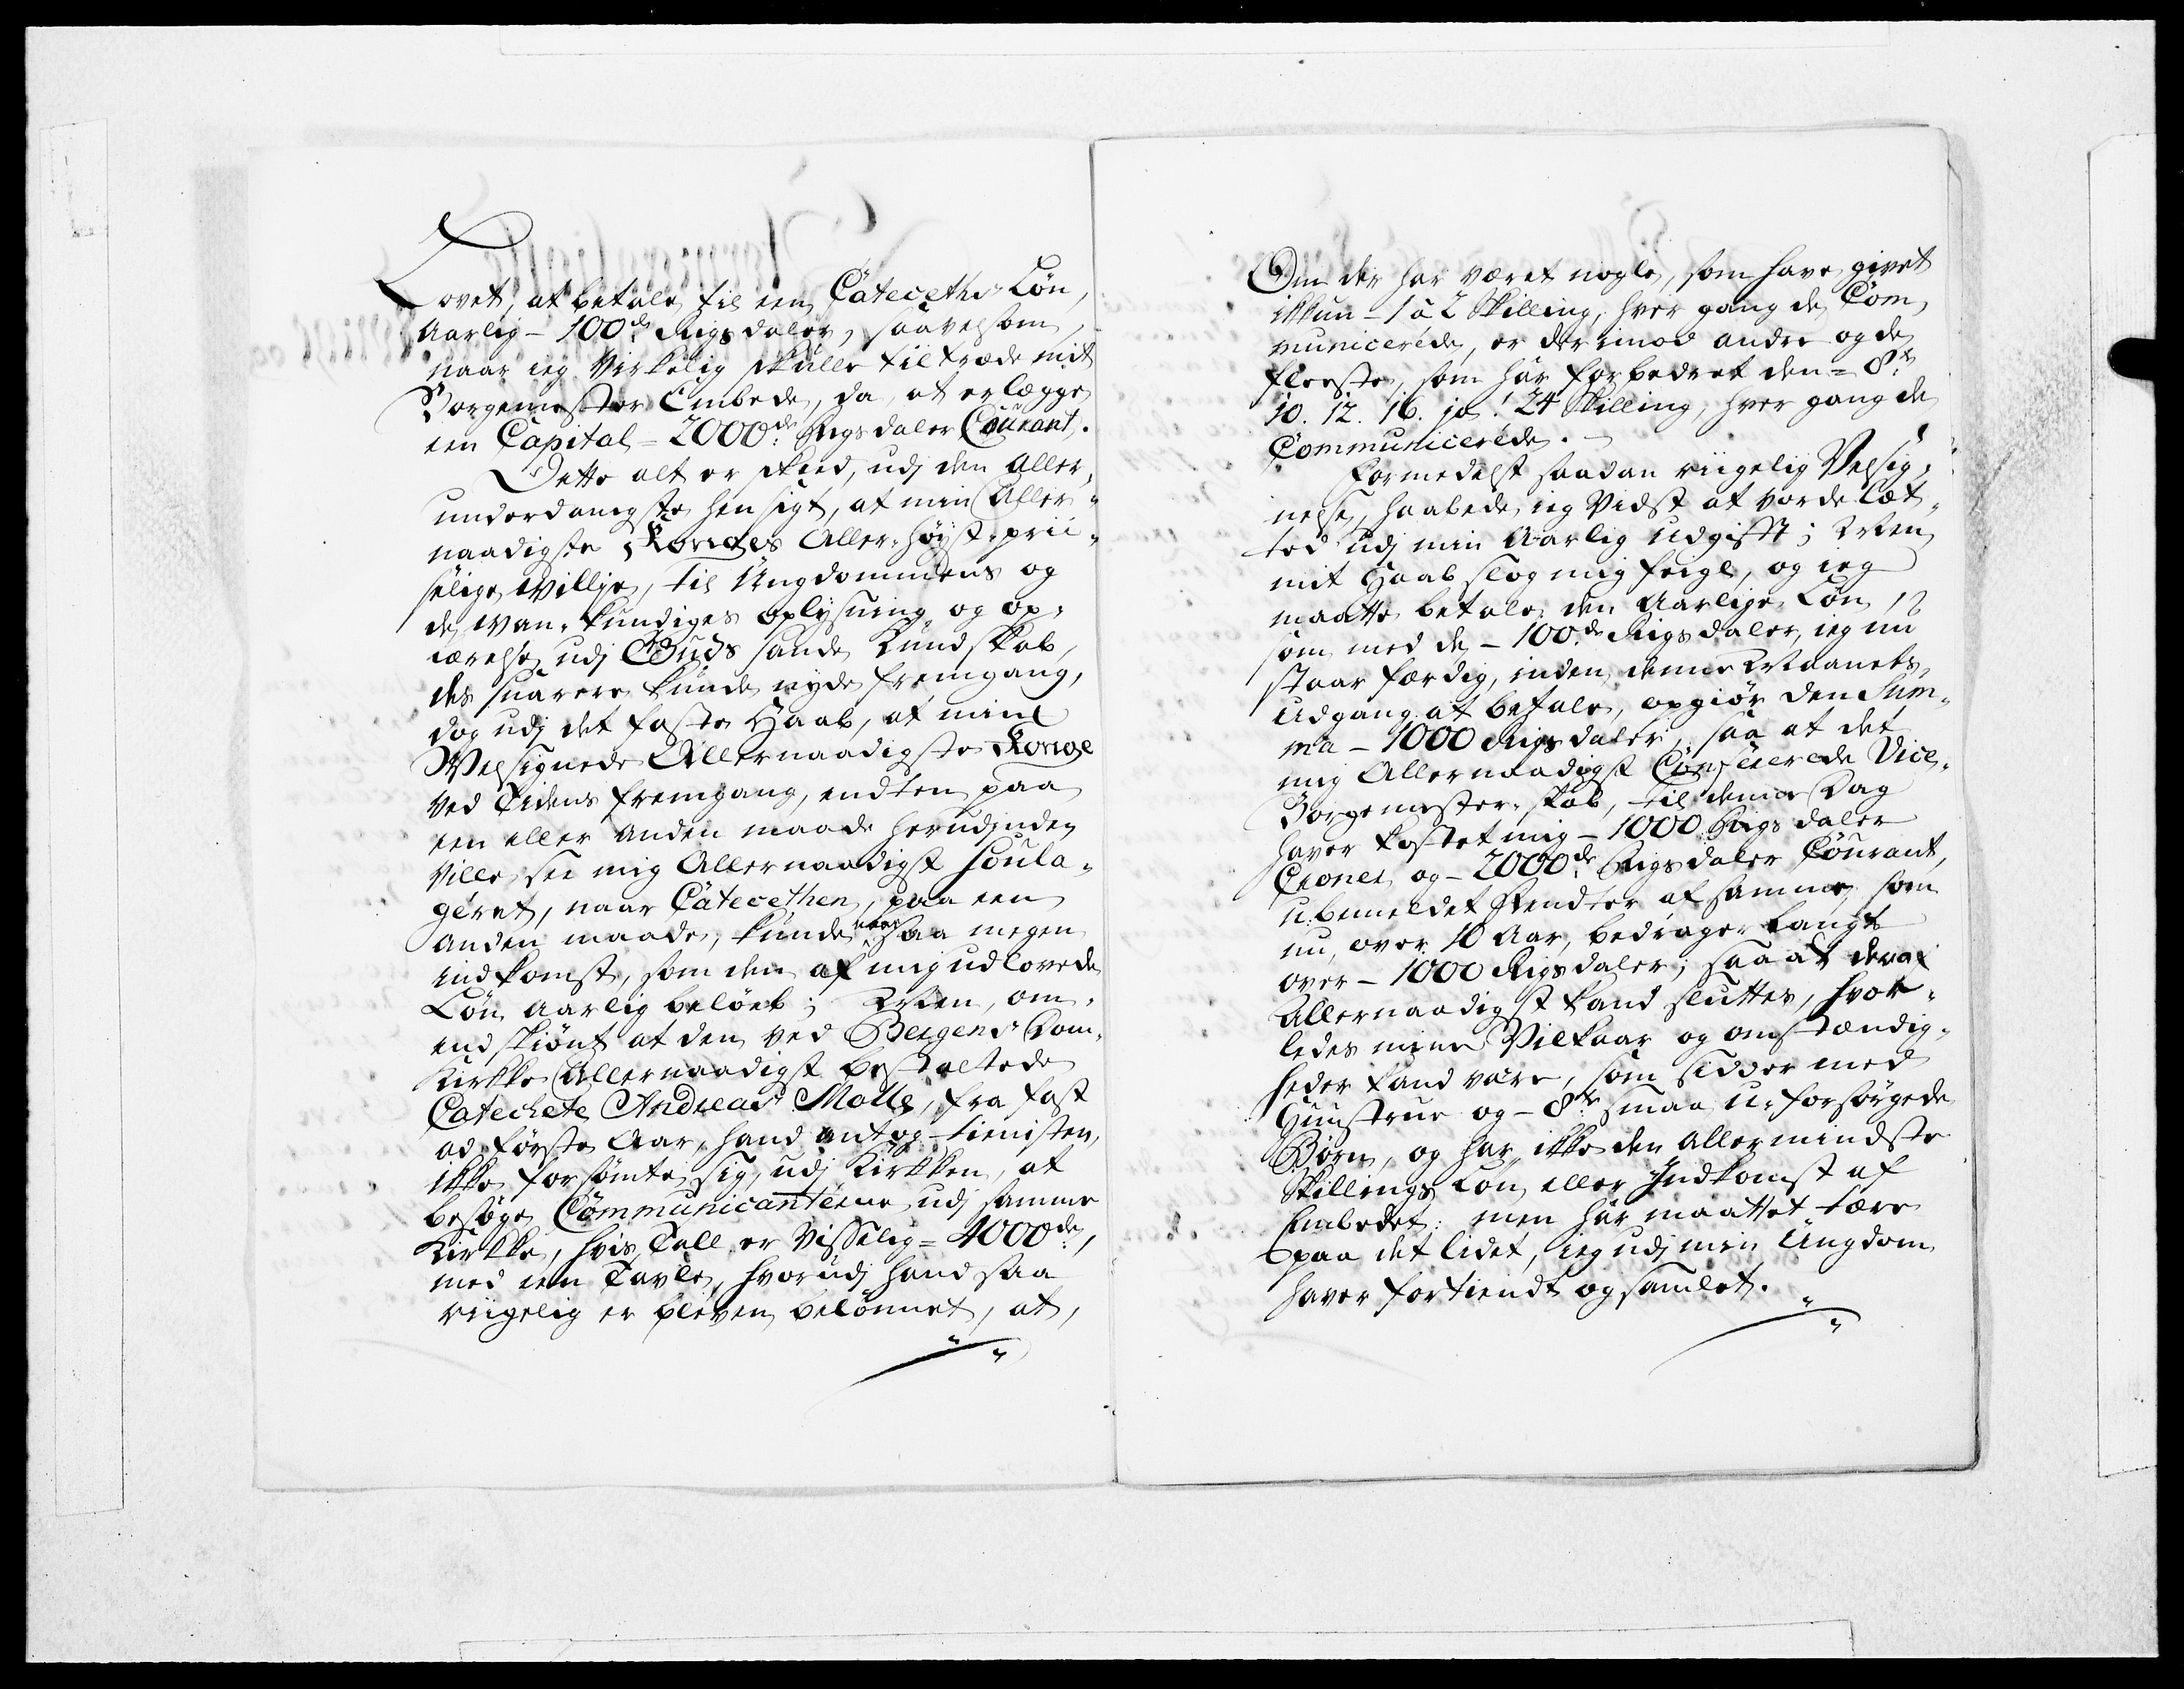 Lovet, at betale til een Catecethes Løn,
Aarlig - 100de Rigsdaler, saavelsom,
naar ieg Virkelig skulle tiltræde mit
Borgemester Embede, da at erlægge
een Capital - 2000de Rigsdaler Courant.
Dette alt er skeed, udj den aller,,
underdanigste hensigt, at min Aller,,
naadigste Konges Aller-høyst-prii,,
selige Willje, til Ungdommens og
de Wan-kundiges oplysning og op,,
tærelse udj Guds sande Kundskab,
des snarere kunde nyde fremgang,
dog udj det faste Haab, at min
Velsignede Allernaadigste Konge
ved Tidens fremgang, endten paa
een eller anden maade herudjnden
Ville see mig Allernaadigst soula,,
geret, naar Catecethen, paa een
anden maade, kunde nyde saa megen
indkomst, som den af mig udlovede
Løn aarlig beløeb; Men, om,,
endskiønt at den ved Bergens Dom,,
Kirkke Allernaadigst bestaltede
Catechete Andreas Molle, fra fast
ad første Aar, hand antog tienisten,
ikke forsømte sig, udj Kirkken, at
besøge Communicanterne udj samme
Kirkke, hvis Tall er Visselig = 4000de,
med een Tavle, hvorudj hand saa
riigelig er bleven belønnet, at,
Om der har været nogle, som have givet
ikkun - 1 a 2 Skilling, hver gang de Com,,
municerede, er der imod andre og de
fleeste, som har forbedret den = 8te
10. 12. 16. ja! 24 Skilling, hver gang de
Communicerede. -
Formedelst saadan riigelig Velsig,,
nelse, haabede ieg Vidst at vorde Læt,,
ted udj min Aarlig Udgifft; Men
mit Haab slog mig feigl, og ieg
maatte betale den Aarlige Løn,
som med de - 100de Rigsdaler, ieg nu
staar færdig, inden denne Maanets
Udgang at betale, opgiør den Sum,,
ma - 1000 Rigsdaler, saa at det
mig Allernaadigst Confererede Vice,,
Borgemester-skab, til denne Dag
haver kostet mig - 1000 Rigsdaler
Croner og - 2000de Rigsdaler Courant,
u-bemeldet Rendter af samme, som
nu, over 10 Aar, bedrager langt
over - 1000 Rigsdaler; saa at deraf
Allernaadigst kand sluttes, hvor,,
ledes mine Vilkaar og omstændig,,
heder kand være, som sidder med
Huustrue og - 8te smaa u-forsørgede
Børn, og har ikke den allermindste
Skillings Løn eller Indkomst af
Embedet: men har maattet tære
paa det lidet, ieg udj min Ungdom
haver fortiendt og samlet.